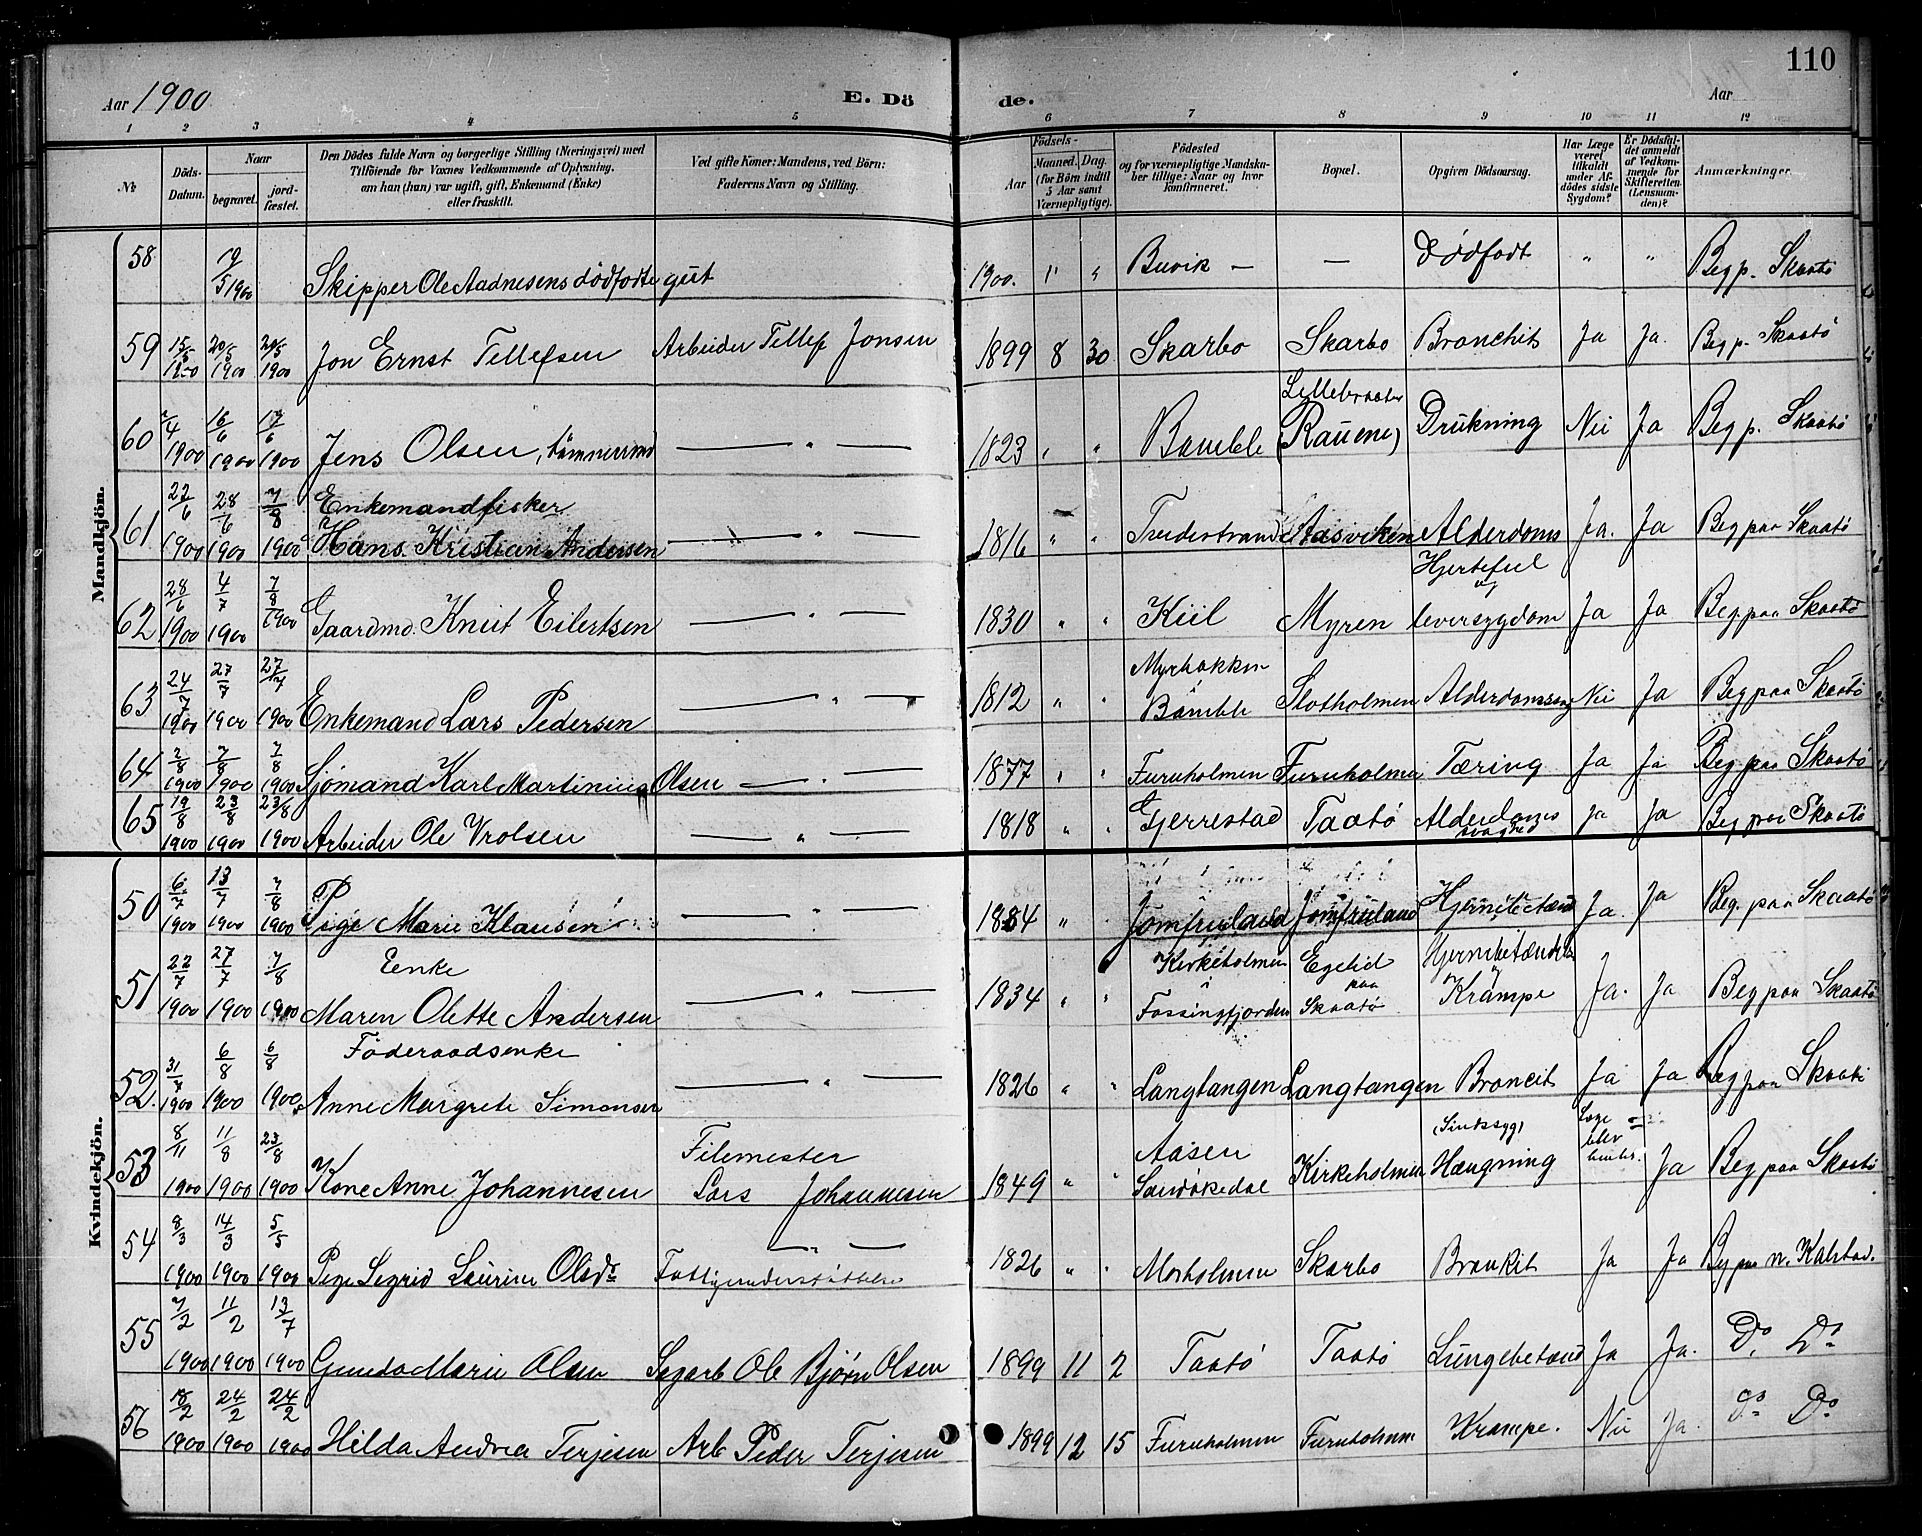 110
Aar 1900 E. Dö de. Aar
1 2 3 4 5 6 7 8 9 10 11 12
№ Döds-Datum. Naar begravet. jordfæstet. Den Dödes fulde Navn og borgerlige Stilling (Næringsvei) med Tilföiende for Voxnes Vedkommende af Oplysning, om han (hun) var ugift, gift, Enkemand (Enke) eller fraskilt. Ved gifte Koner: Mandens, ved Börn: Faderens Navn og Stilling. Födsels- Aar Maaned. Dag. (for Börn indtil 5 Aar samt Værnepligtige). Födested og for værnepligtige Mandskaber tillige: Naar og hvor konfirmeret. Bopæl. Opgiven Dödsaarsag. Har Læge været tilkaldt under Afdödes sidste Sygdom? Er Dödsfaldet anmeldt af Vedkommende for Skifteretten (Lensmanden)? Anmærkninger
Mandkjön.
58 19/5 1900 Skipper Ole Aadnesens dödfödte gut 1900. " " Buvik — — Dödfödt " " Beg p. Skaatö
59 15/5 1900 20/5 1900 20/5 1900 Jon Ernst Tellefsen Arbeider Tellef Jonsen 1899 8 30 Skarbo Skarbo Bronchit Ja Ja. Beg p. Skaatö
Lillebraaten
60 7/4 1900 16/6 1900 17/6 1900 Jens Olsen, tömnermd — " — 1823 " " Bamble (Rauene) Drukning Nei Ja Beg p. Skaatö
Enkemand fisker
61 22/6 1900 28/6 1900 7/8 1900 Hans Kristian Andersen — " — 1816 " " Tvedestrand Aasviken Alderdoms Ja. Ja Beg paa Skaatö
Hjertefeil
og
62 28/6 1900 4/7 1900 7/8 1900 Gaardmd. Knut Eilertsen — " — 1830 " " Kiil Myren leversygdom Ja Ja Beg paa Skaatö
Myrbakken
i
63 24/7 1900 27/7 1900 27/7 1900 Enkemand Lars Pedersen — " — 1812 " " Bamble Slotholmen Alderdomssvag Nei Ja Beg paa Skaatö
64 2/8 1900 7/8 1900 7/8 1900 Sjömand Karl Martinius Olsen — " — 1877 " " Furuholmen Furuholmen Tæring Ja Ja Beg paa Skaatö
65 19/8 1900 23/8 1900 23/8 1900 Arbeider Ole Vrolsen — " — 1818 " " Gjerrestad Taatö Alderdoms svaghed Ja Ja Beg paa Skaatö
Kvindekjön.
50 6/7 1900 13/7 1900 7/8 1900 Pige Marie Klausen — " — 1884 " " Jomfruland Jomfruland Hjernebetænd Ja. Ja Beg. paa Skaatö
Eenke Kirkeholmen Egelid Hjernebetændelse
i paa og
51 22/7 1900 27/7 1900 7/8 1900 Maren Olette Andersen — " — 1834 " " Fossingfjorden Skaatö Krampe Ja. Ja Beg paa Skaatö
Föderaadsenke
52. 31/7 1900 6/8 1900 6/8 1900 Anne Margrete Simonsen — " — 1826 " " Langtangen Langtangen Broncit Ja Ja Beg paa Skaatö
Filemester Aasen (Sindssyg) Læge blev
53 8/11 1900 11/8 1900 23/8 1900 Kone Anne Johannesen Lars Johannesen 1849 " " Sandökedal Kirkeholmen Hængning Ja Beg paa Skaatö
54 8/3 1900 14/3 1900 5/5 1900 Pige Segrid Laurine Olsdr — " — Fattigunderstöttelse 1826 " " Morholmen Skarbo Bronkit Ja Ja Beg paa n. Kalstad.
55 7/2 1900 11/2 1900 13/7 1900 Gunda Marie Olsen Segarb Ole Bjørn Olsen 1899 11 2 Taatö Taatö Lungebetænd Ja Ja. Do Do
56 18/2 1900 24/2 1900 24/2 1900 Hilda Andrea Terjesen Arb Peder Terjesen 1899 12 15 Furuholmen Furuholmen Krampe. Nei Ja. Do Do